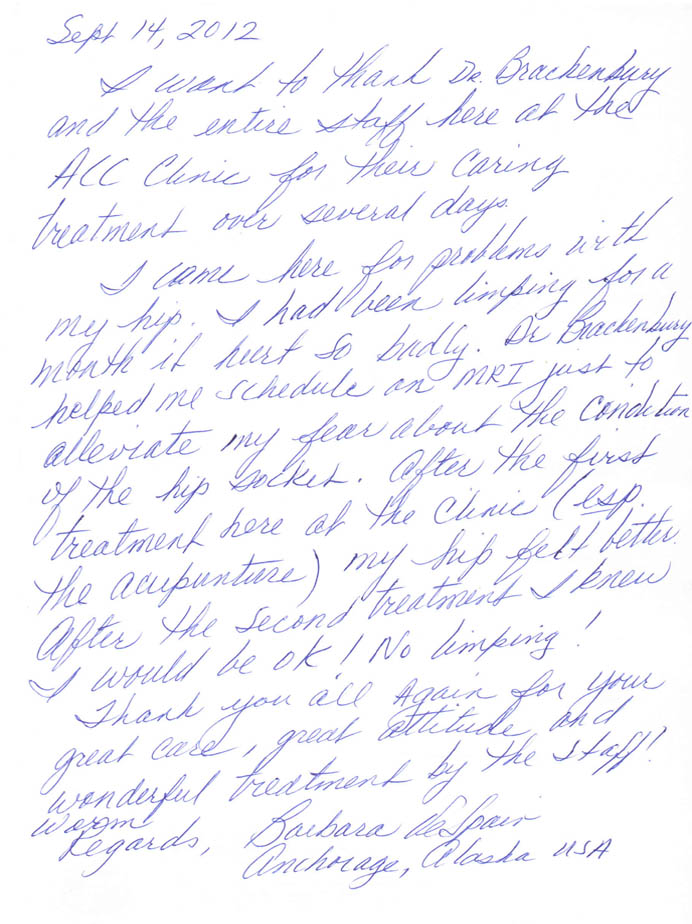 Sept 14, 2012
I want to thank Dr. Brackenbury
and the entire staff here at the
ACC Clinic for their caring
treatment over several days.
I came here for problems with
my hip. I had been limping for a
month it hurt so badly. Dr Brackenbury
helped me schedule an MRI just to
alleviate my fear about the condition
of the hip socket. After the first
treatment here at the Clinic (esp.
the acupunture) my hip felt better.
After the second treatment I knew
I would be OK! No limping!
Thank you all Again for your
great care, great attitude and
wonderful treatment by the staff!
Warm
Regards, Barbara DeSpain
Anchorage, Alaska USA